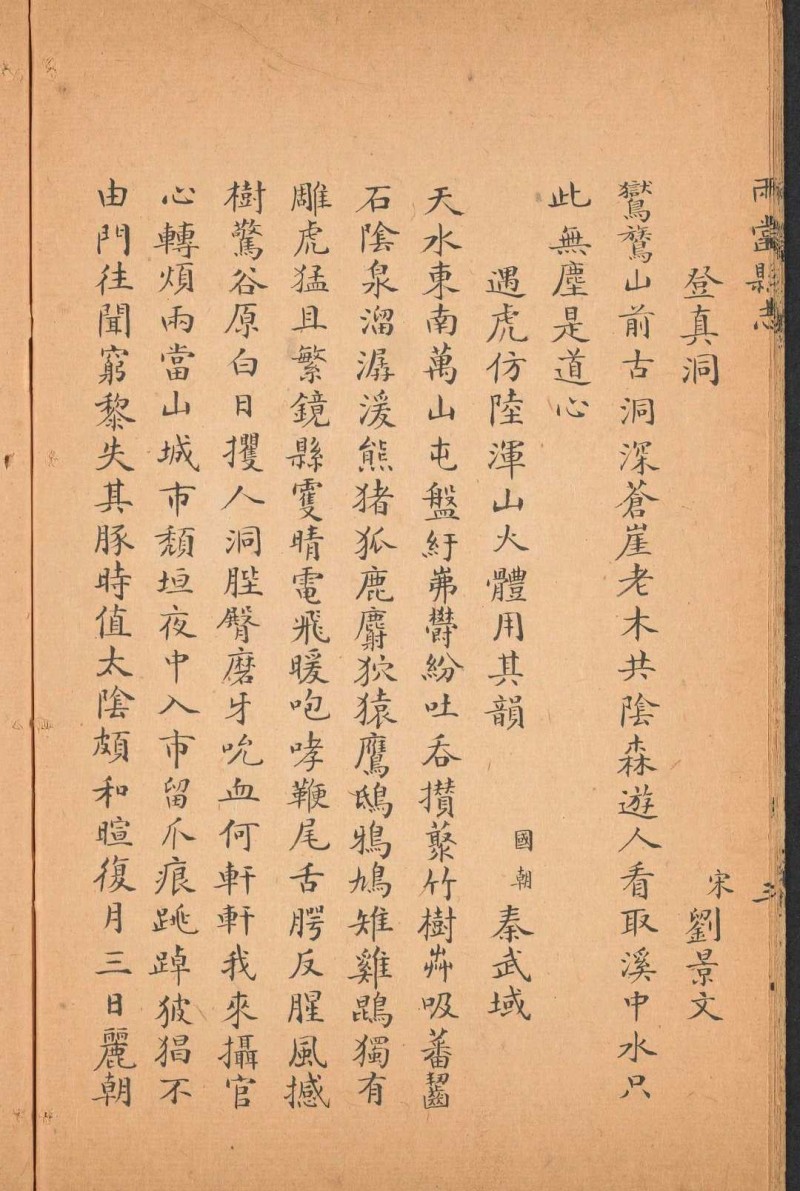 兩當縣志 三
登真洞 宋劉景文
鸑鷟山前古洞深蒼崖老木共陰森遊人看取溪中水只
此無塵是道心
遇虎仿陸渾山火體用其韻 國朝秦武域
天水東南萬山屯盤紆岪鬱紛吐吞攢蔂竹樹茻吸蕃齧
石陰泉溜潺湲熊猪狐鹿麝狖猿鷹鴟鴉鳩雉雞鵾獨有
雕虎猛且繁鏡縣䨥晴電飛暖咆哮鞭尾舌腭反腥風撼
樹驚谷原白日攫人洞脞臀磨牙吮血何軒軒我來攝官
心轉煩兩當山城市頽垣夜中入市留爪痕跳踔狓猖不
由門往聞窮黎失其豚時值太陰頗和暄復月三日麗朝